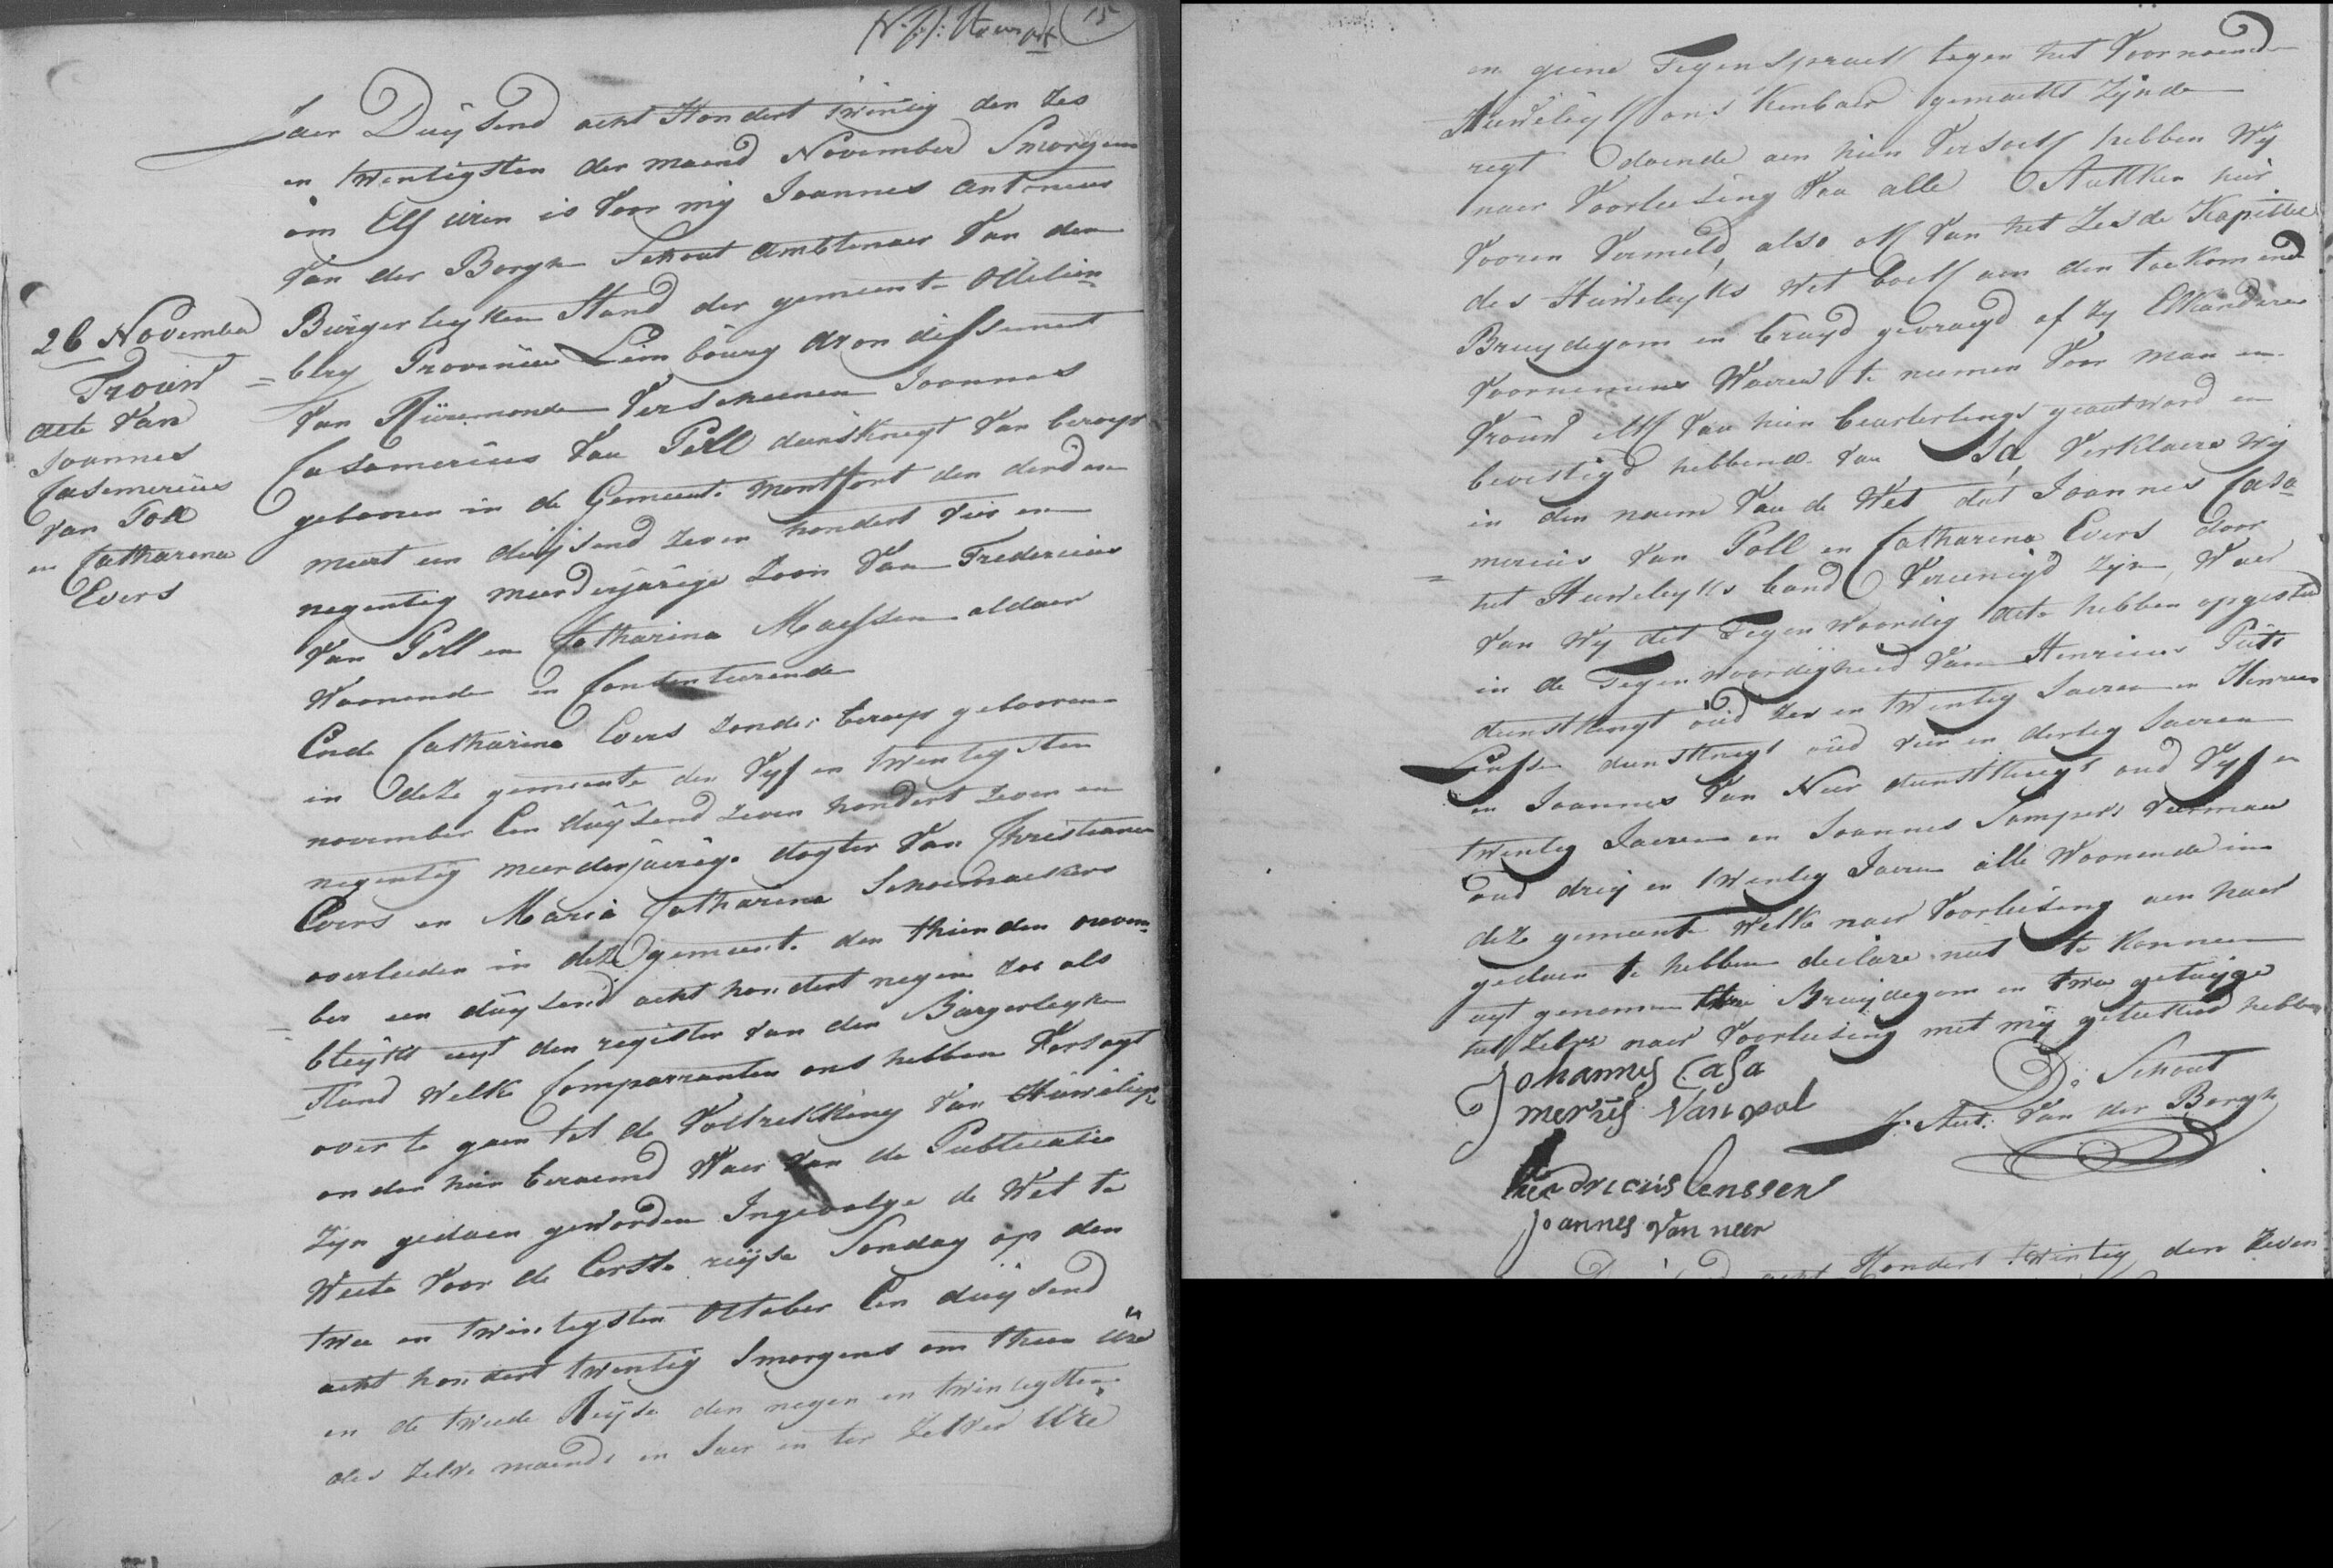 15
26 November
Trouw
acte van
Joannes
Casemerius
van Poll
en Catharina
Evers
Jaer Duysend acht Hondert twintig den zes
en twentigsten der maend November Smorgens
om Elf uren is voor mij Joannes Antonius
van der Borgh Schout Ambtenaer van den
Burgerleyken Stand der gemeente Odilien=
=berg Provincie Limbourg arondissement
van Rüremonde verscheenen Joannes
Casamerius van Poll dienstknegt van beroep
gebooren in de Gemeente montfort den derden
meert een duysend zeven hondert vier en
negentig meerderjarige zoon van Fredericus
van Poll en Catharina Maessen aldaer
Woonende en Consenteerende
Ende Catharina Evers zonder beroep gebooren
in deze gemeente den vyf en twentigsten
november Een duysend zeven hondert zeven en
negentig meerderjaerige dogter van Christianus
Evers en Maria Catharina Schoemaekers
overleeden in deze gemeente den thienden novem=
=ber een duysend acht hondert negen zoo als
blijkt uyt den register van den Burgerleyken
Stand welke Comparanten ons hebben versogt
over te gaen tot de voltrekking van Huwelijk
onder hun beraemd Waer van de Publicatie
zyn gedaen geworden Ingevolge de Wet te
Weete voor de Eerste reijse Sondag op den
twee en twintigsten October Een duijsend
acht hondert twentig Smorgens om thien Ure
en de tweede Reijse den negen en twintigsten
des zelve maends en Jaer en ter zelver Ure
en geene Tegenspraek tegen het voornoemde
Huwelijk ons kenbaer gemaekt zijnde
regt doende aen hun versoek hebben Wij
naer voorleesing van alle Stukken hier
vooren vermeld, also ok van het zesde Kapittel
des Huwelyks Wet boek aen den toekomend
Bruydegom en bruyd gevraegd of zy Elkanderen
voornemens Waeren te neemen voor man en
vrouw elk van hun beurtelings geantword en
bevestigd hebbende van Ja, verklaere Wij
in den naem van de Wet dat Joannes Casa=
=merius van Poll en Catharina Evers door
het Huwelijks band vereenigd zijn, Waer
van Wij dit Tegenwoordig acte hebben opgesteld
in de Tegenwoordigheid van Henricus Puts
dienstknegt oud zes en twintig Jaeren en Henricus
Lenssen dienstknegt oud vier en dertig Jaeren
en Joannes van Neer dienstknegt oud vyf en
twintig Jaeren en Joannes Sampers veerman
oud drij en twintig Jaeren alle Woonende in
deze gemeente Welke naer voorleesing aen haer
gedaen te hebben declare niet te konnen
uyt genomen den Bruydegom en twee getuijge
het zelve naer voorleesing met mij geteekend hebben
Johannes Casa
merius Van pol
De Schout
J. Ant: Van der Borgh
hendricus lenssen
joannes van neer
acht Hondert twintig den zeven